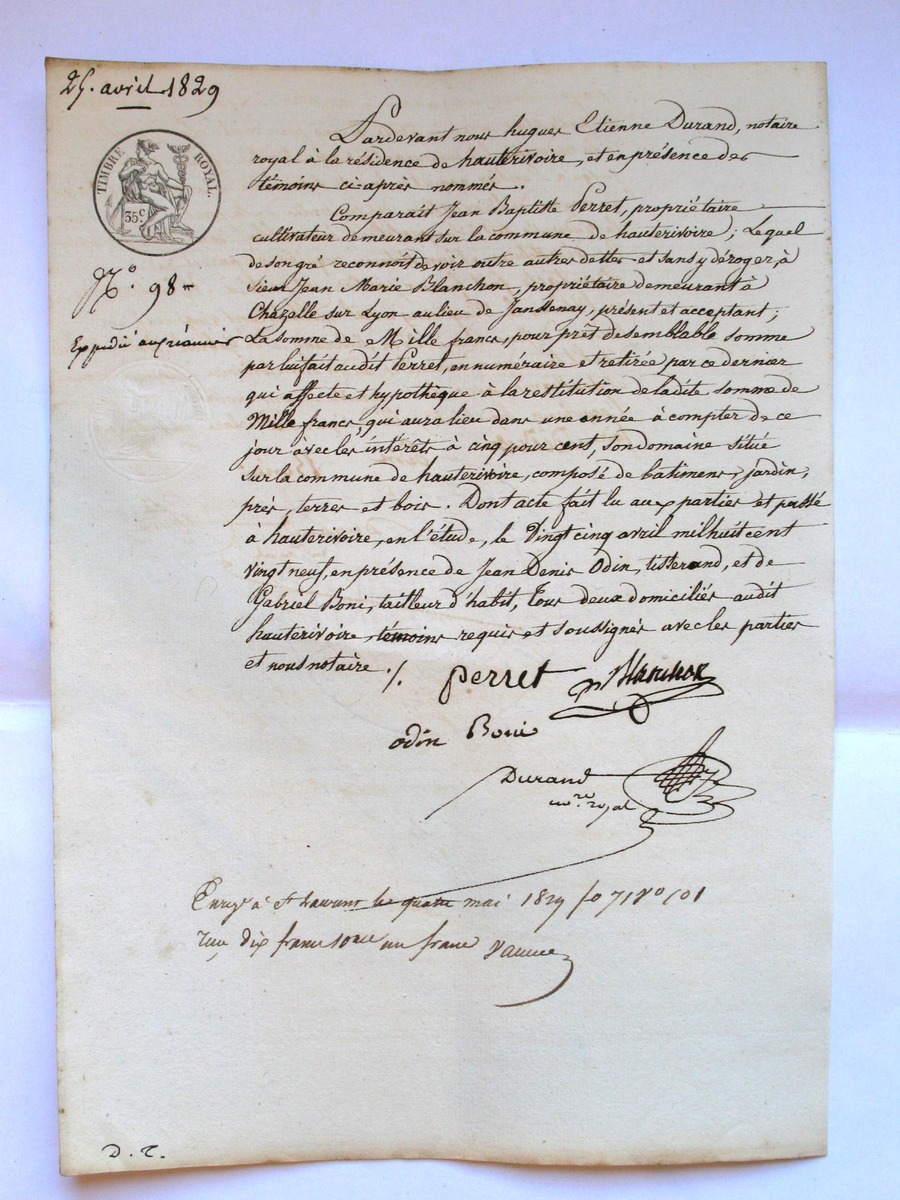 25. avril 1829
TIMBRE ROYAL.
35 c.
N.o 98
Expédié
Pardevant nous hugues Etienne Durand, notaire
royal à la résidence de hauterivoire, et en présence des
témoins ci-après nommés.
Comparait Jean Baptiste Perret, propriétaire
cultivateur demeurant sur la commune de hauterivoire; Lequel
de son gré reconnoit devoir outre autres dettes et sans y déroger, à
sieur Jean Marie Blanchon, propriétaire demeurant à
Chazelle sur Lyon au lieu de Janssenay, présent et acceptant;
La somme de Mille francs, pour prêt de semblable somme
par lui fait audit Perret, en numéraire et retirée par ce dernier
qui affecte et hypothèque à la restitution de ladite somme de
Mille francs, qui aura lieu dans une année à compter de ce
jour avec les intérêts à cinq pour cent, son domaine situé
sur la commune de hauterivoire, composé de batimens, jardin,
près, terres et bois. Dont acte fait lu aux parties et passé
à hauterivoire, en l'étude, le Vingt cinq avril mil huit cent
vingt neuf, en présence de Jean Denis Odin, tisserand, et de
Gabriel Boni, tailleur d'habit, Tous deux domiciliés audit
hauterivoire témoins requis et soussignés avec les parties
et nous notaire ./.
perret Blanchon
odin Boni
Durand
no.re royal
Enreg. à St Laurent le quatre mai 1829 fo 71 Vo C 01
reçu dix francs un franc
D. T.